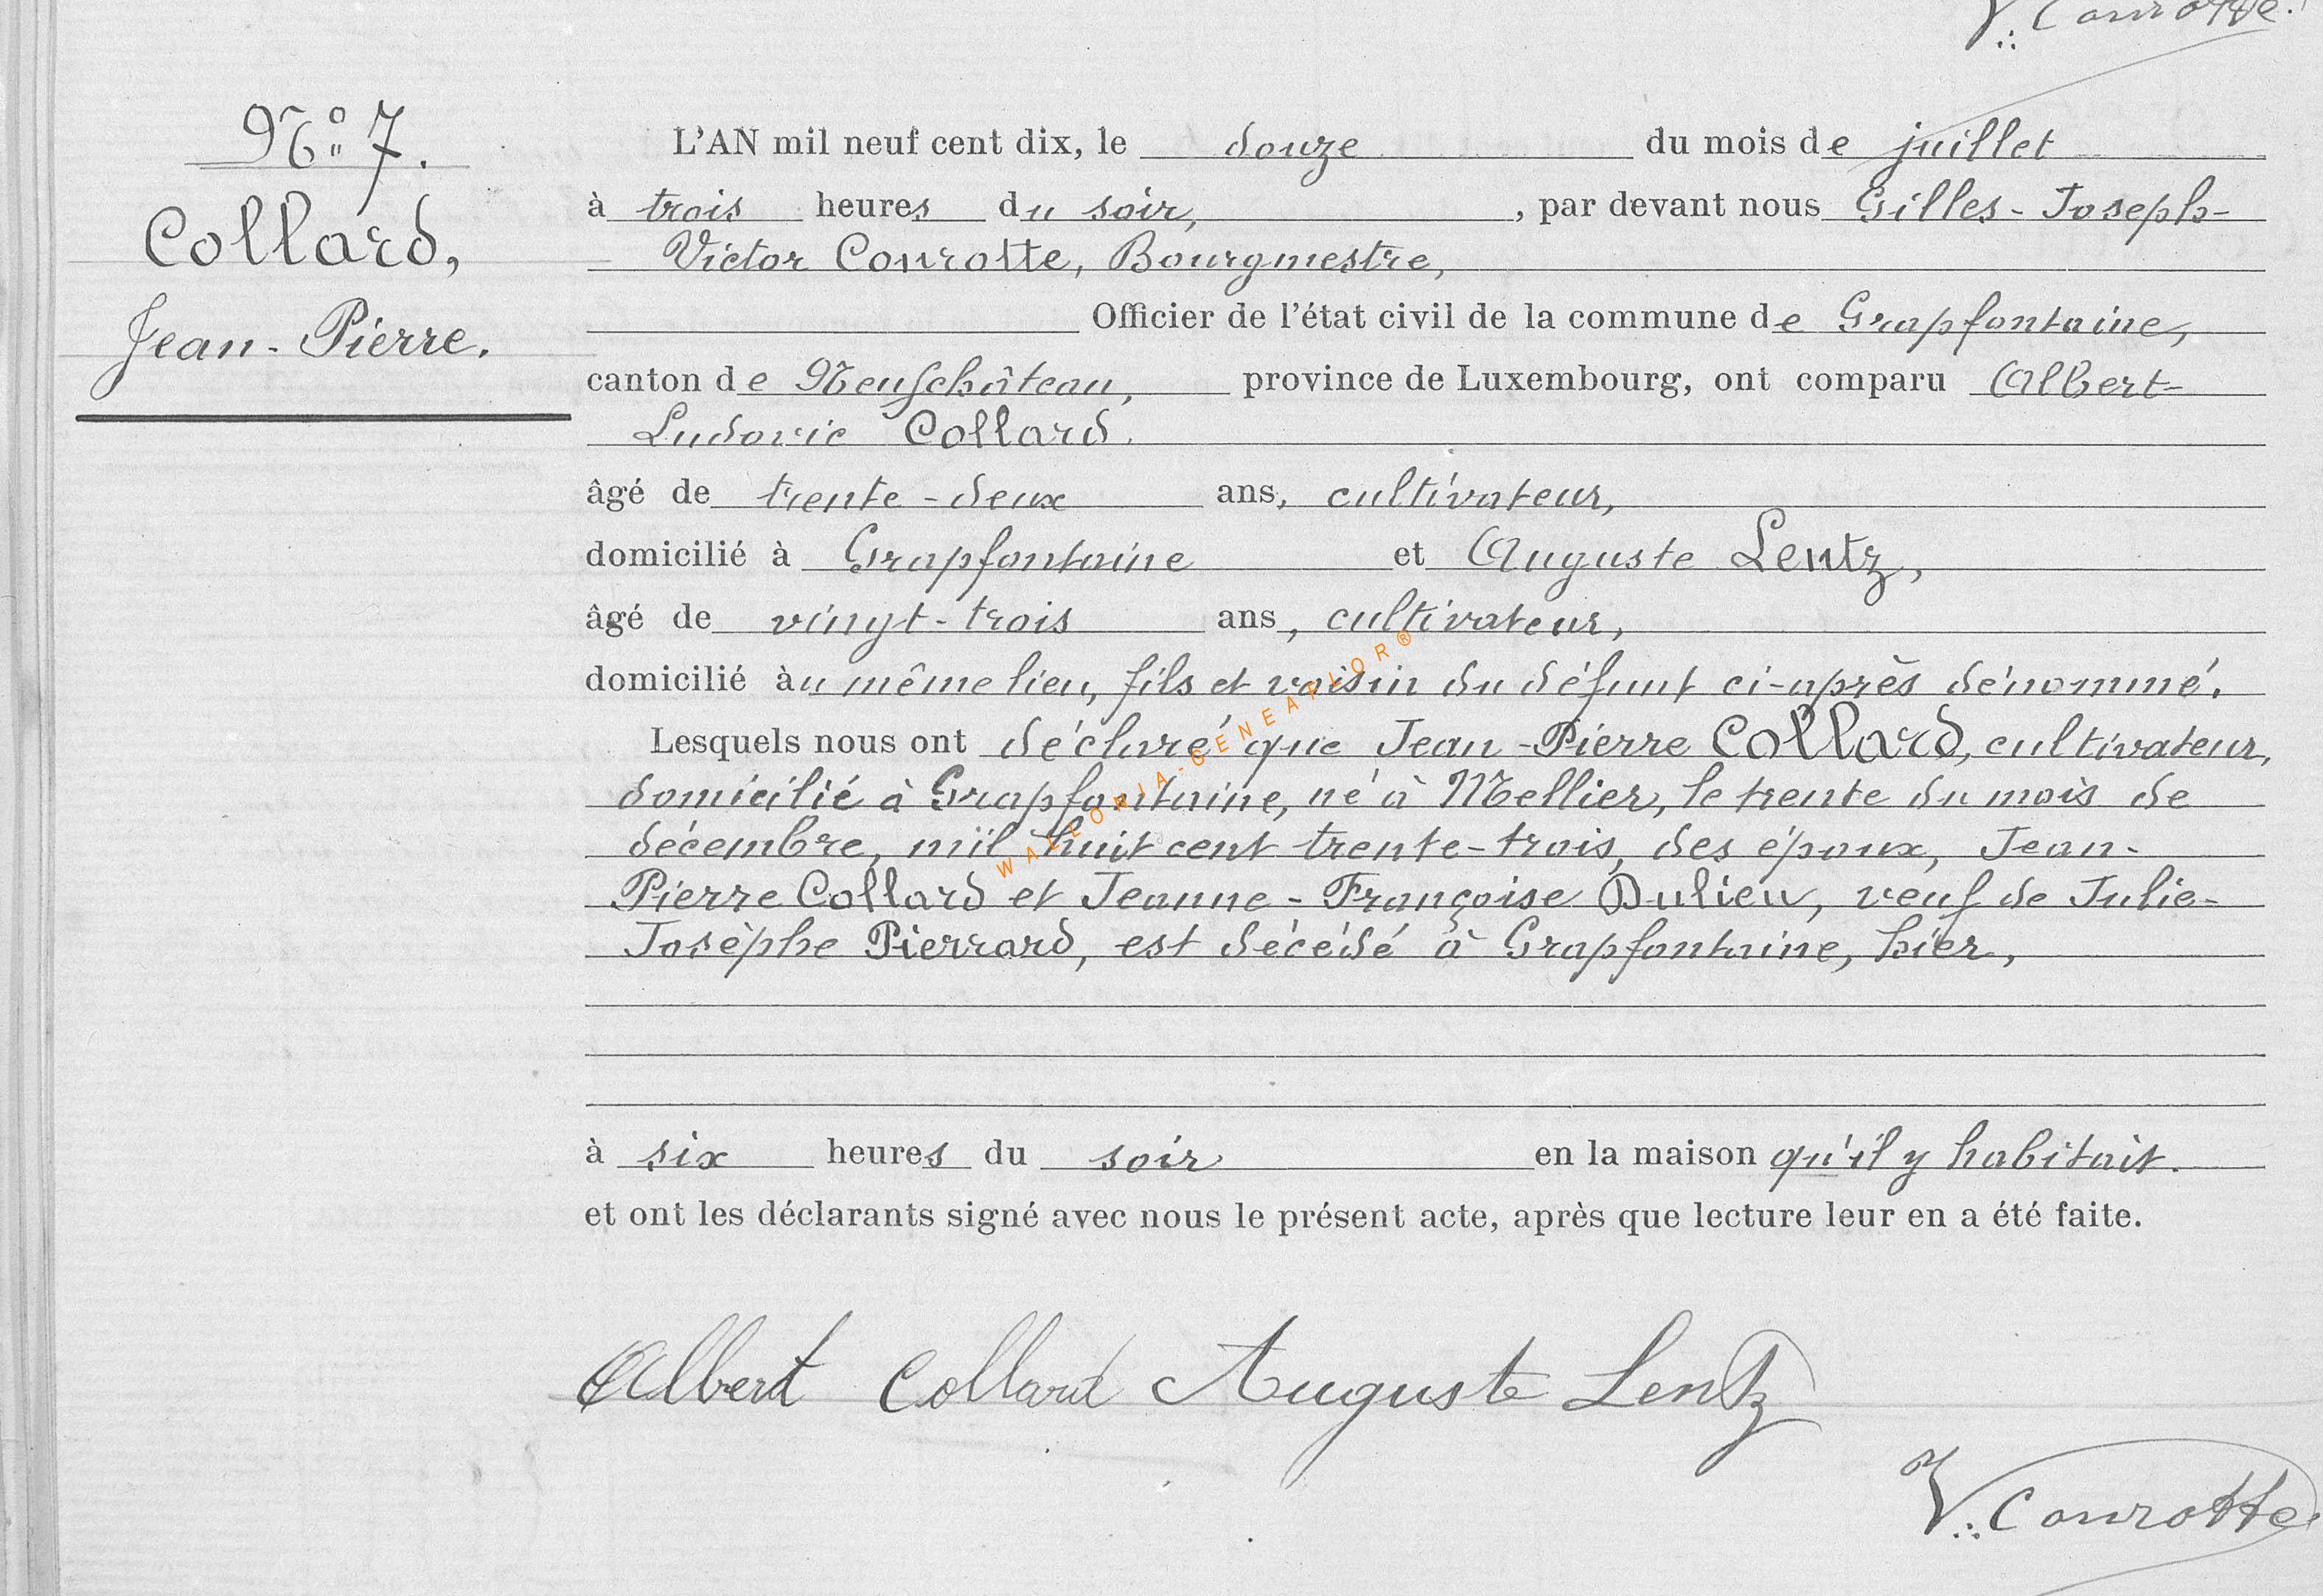 V. Conrotte.
N.º 7.
Collard,
Jean-Pierre.
L'AN mil neuf cent dix, le douze du mois de juillet
à trois heures du soir, , par devant nous Gilles-Joseph-
Victor Conrotte, Bourgmestre,
Officier de l'état civil de la commune de Grapfontaine,
canton de Neufchâteau, province de Luxembourg, ont comparu Albert-
Ludovic Collard.
âgé de trente-deux ans, cultivateur,
domicilié à Grapfontaine et Auguste Lentz,
âgé de vingt-trois ans, cultivateur,
domicilié au même lieu, fils et voisin du défunt ci-après dénommé.
Lesquels nous ont déclaré que Jean-Pierre Collard, cultivateur,
domicilié à Grapfontaine, né à Mellier, le trente du mois de
décembre, mil huit cent trente-trois, des époux, Jean-
Pierre Collard et Jeanne-Françoise Dulieu, veuf de Julie-
Josèphe Pierrard, est décédé à Grapfontaine, hier,
à six heures du soir en la maison qu'il y habitait.
et ont les déclarants signé avec nous le présent acte, après que lecture leur en a été faite.
Albert Collard Auguste Lentz
V. Conrotte
WALLONIA-GENEAFLOR®